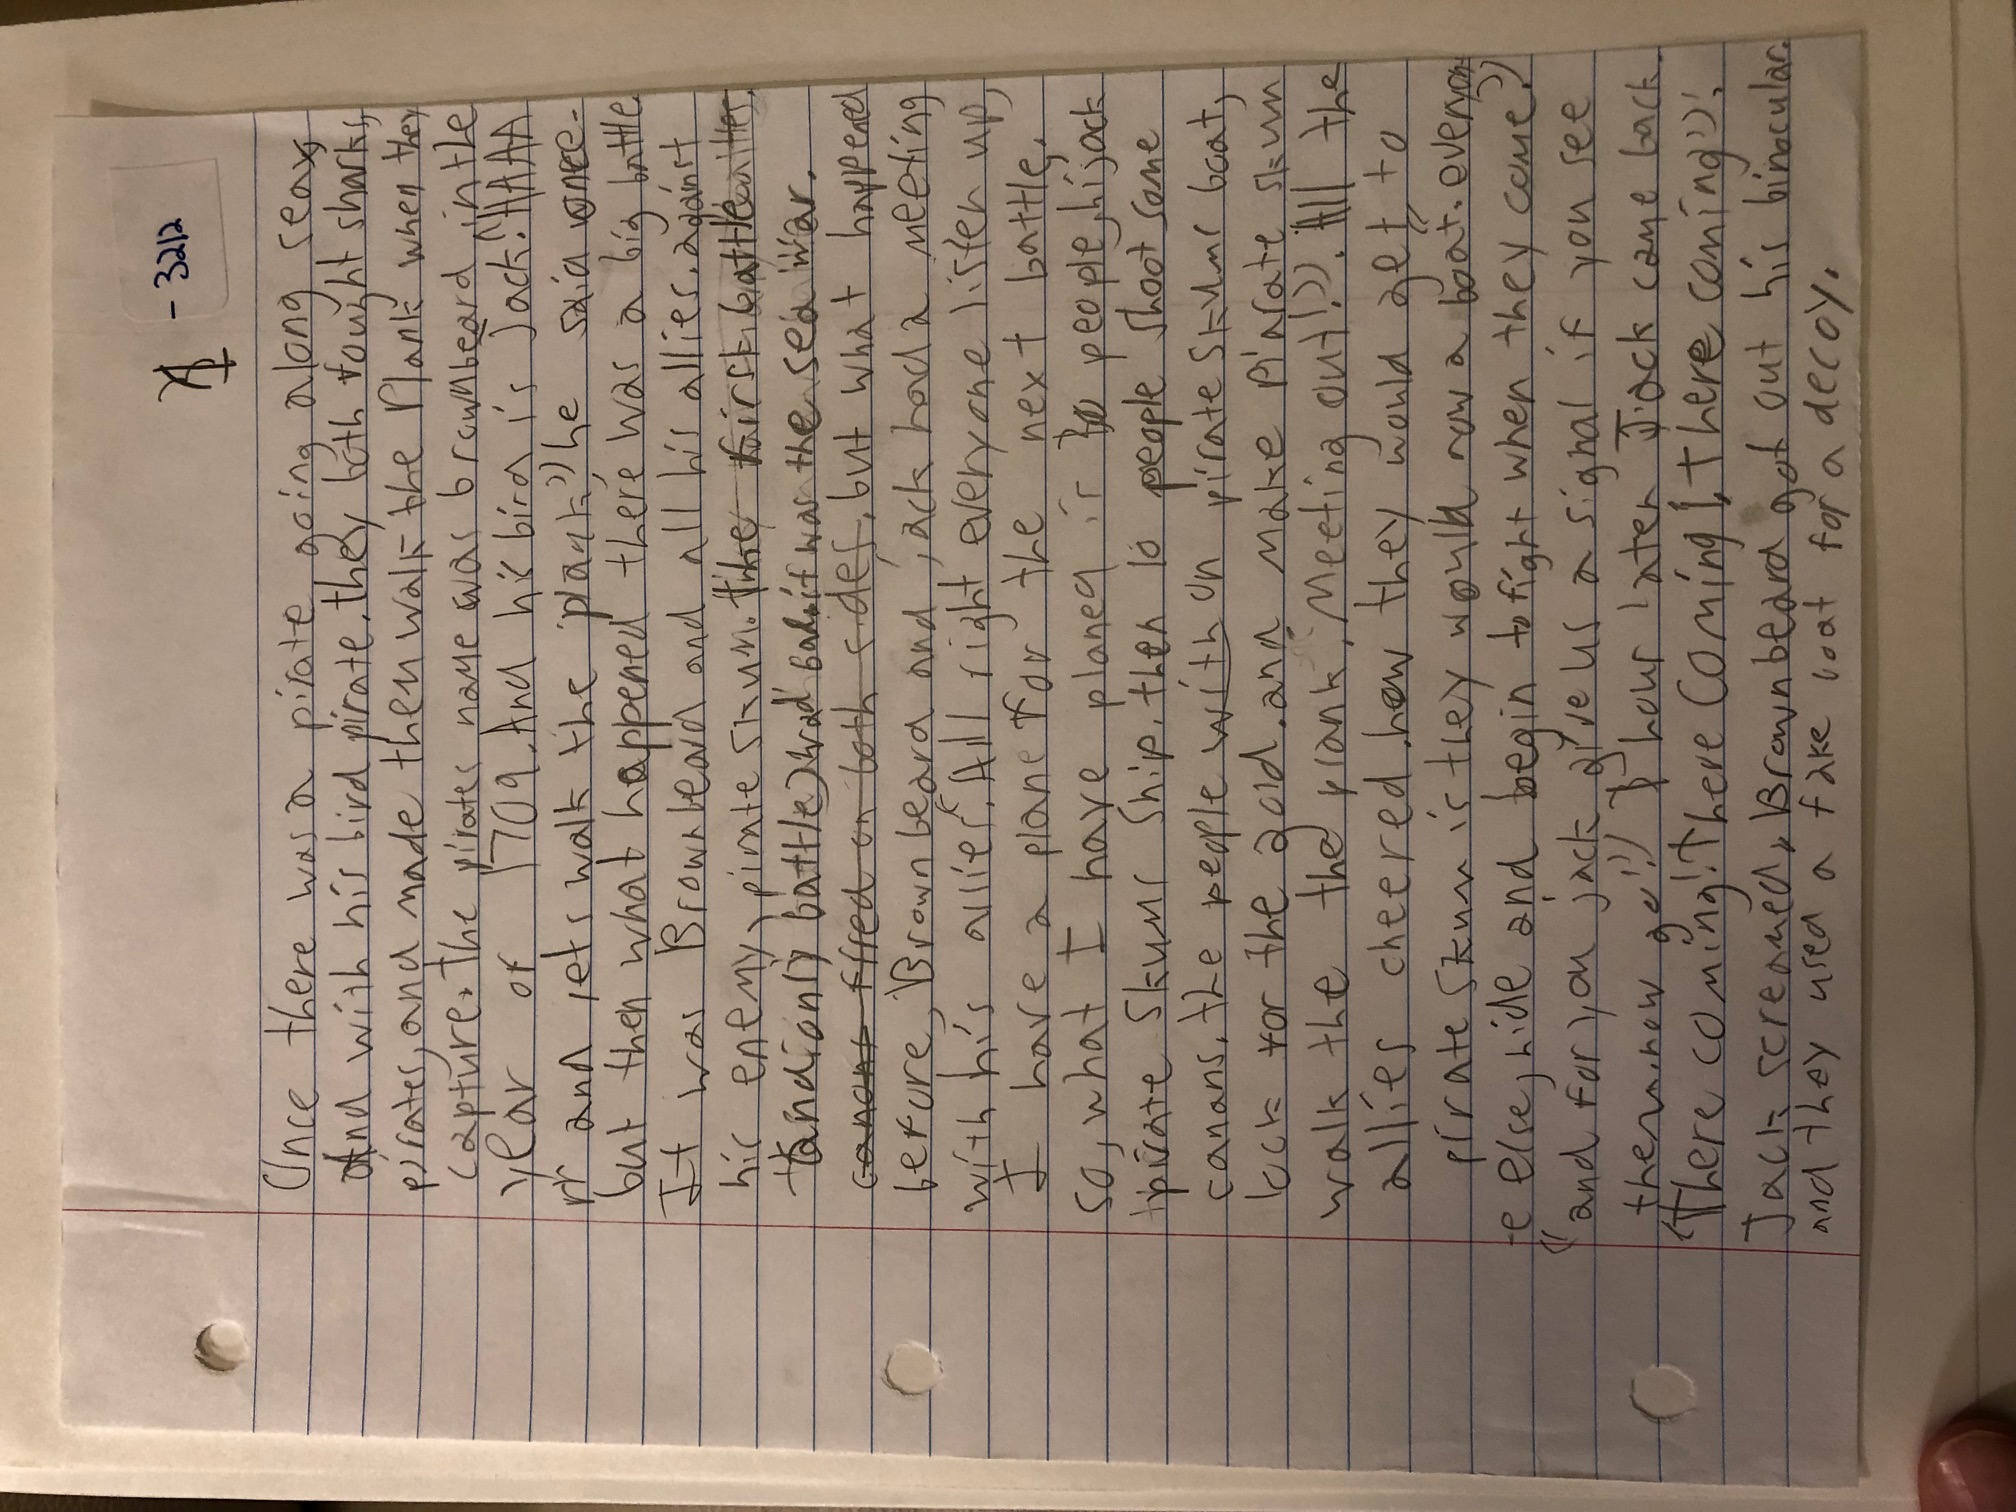 - 3212
Once there was a pirate, going along seas,
And with his bird pirate. they both fought sharks,
pirates, and made them walk the Plank when they
capture. The pirates name was brownbeard in the
year of 1709. And his bird is Jack. "HAAA
rr and lets walk the plank," he said once.
but then what happened there was a big battle.
It was Brownbeard and all his allies. against
his enemy, pirate skum. The first battle
(and only battle) was bad. it was the sea war.
canons fired on both sides. but what happened
before, Brownbeard and jack had a meeting
with his allies. "All right everyone listen up,
I have a plane for the next battle.
so, what I have planed is 10 people, hijack
pirate skums ship. then 10 people shoot some
canans. the people with on pirate skums boat,
look for the gold. and make Piarate skum
walk the the plank. Meeting out!". All the
allies cheered. how they would get to
pirate skum is they would row a boat. "everyon-
e else, hide and begin to fight when they come."
"and for you jack give us a signal if you see
them. now go!" 1 hour later Jack came back.
"There coming! There coming! There coming"!
Jack screamed, Brownbeard got out his binocular.
and they used a fake boat for a decoy.